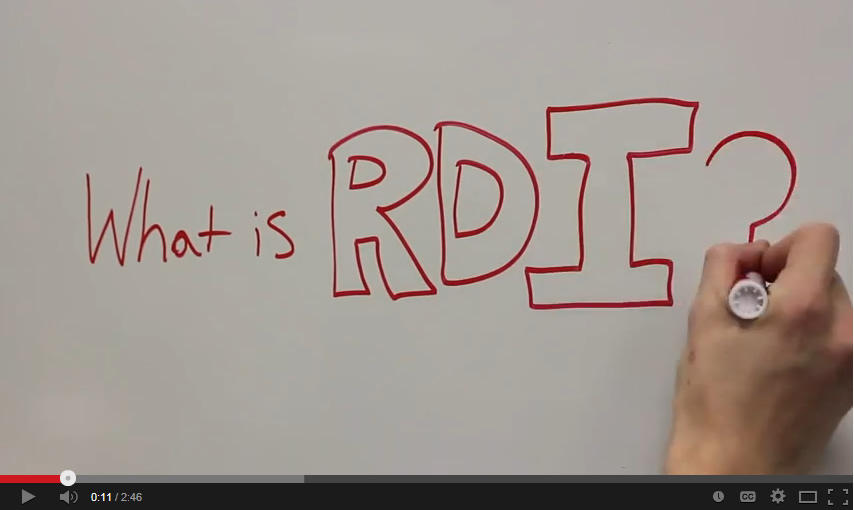 What is RDI?
0:11 / 2:46
CC